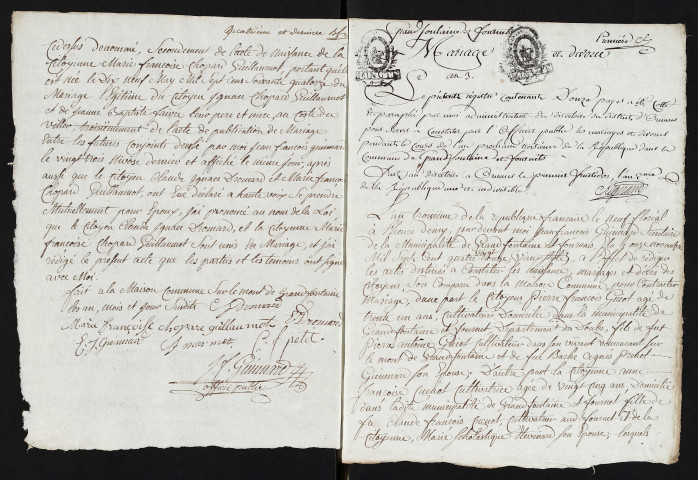 Quatrième et dernière
Cidessus dénommé, Secondement de l'acte de naissance de la
Citoyenne Marie françoise Chopard Guillaumot, portant quelle
est née le Dix neuf May Mil Sept cens Soixante quatorze du
Mariage légitime du Citoyen Ignace Chopard Guillaumot
et de Jeanne Baptiste faivre leur pere et mere, au coté du
villers troisiemement de l'acte de publication de Mariage
Entre les futures conjoints dressé par moi jean françois guimard
le vingt trois Nivose dernier et affiché le même jour, après
aussi que le citoyen Claude Ignace Dromard et Marie françoise
Chopard Guillaumot, ont Eus declaré a haute voix Se prendre
Mutuellement pour Epoux, j'ai prononcé au nom de la Loi
que le citoyen Claude Ignace Dromard, et la citoyenne Marie
françoise Chopard Guillaumot Sont unis En Mariage, et j'ai
rédigé le present acte que les parties et les temoins ont signé
avec Moi.
fait a la Maison Commune Sur le mont de Grandfontaine
les an, mois et jour Susdits
Dromard
Marie Françoise chopare guillaumot
Dromard
E. J. Guimard
marmet
C. f petit
J f Guimard
officier public
Grandfontaine et fournets
Première
Mariage et divorce
an 3.
Le présent registre contenant Douze pages a été Cotté
et paraphé par nous administrateur du directoire du district d'Ornans
pour servir a Constater par l'officier public les mariages et divorces
pendant le cours de l'an troisieme de la République dans la
Commune de Grandfontaine et fournets.
fait au directoire a Ornans le premier fructidor l'an 2me
de la République une et indivisible.
L'an troisieme de la république francaise le neuf floréal
a heure par devant moi Jean françois Guimard notable
de la Municipalité de Grandfontaine et fournets, élu le onze novembre
Mil Sept cent quatre vingt , a l'effet de rédiger
les actes destinés a Constater les naissances, mariages et décès des
citoyens, Sont Comparu dans la maison Commune pour Contracter
Mariage, d'une part le Citoyen Pierre François Guiot agé de
trente six ans, Cultivateur Domicilié dans la municipalité de
Grandfontaine et fournet Département du doubs, fils de fut
Pierre antoine Guiot cultivateur dans son vivant demeurant sur
le mont de Grandfontaine et de fue Barbe agnès
Guimard Son Epouse; D'autre part la citoyenne anne
françoise Cuenot Cultivatrice agée de vingt cinq ans, Domicilié
dans ladite municipalité de Grandfontaine et fournet fille de
feu Claude françois Cuenot, Cultivateur aud fournet et de la
Citoyenne, Marie Scholastique son Epouse, lesquels